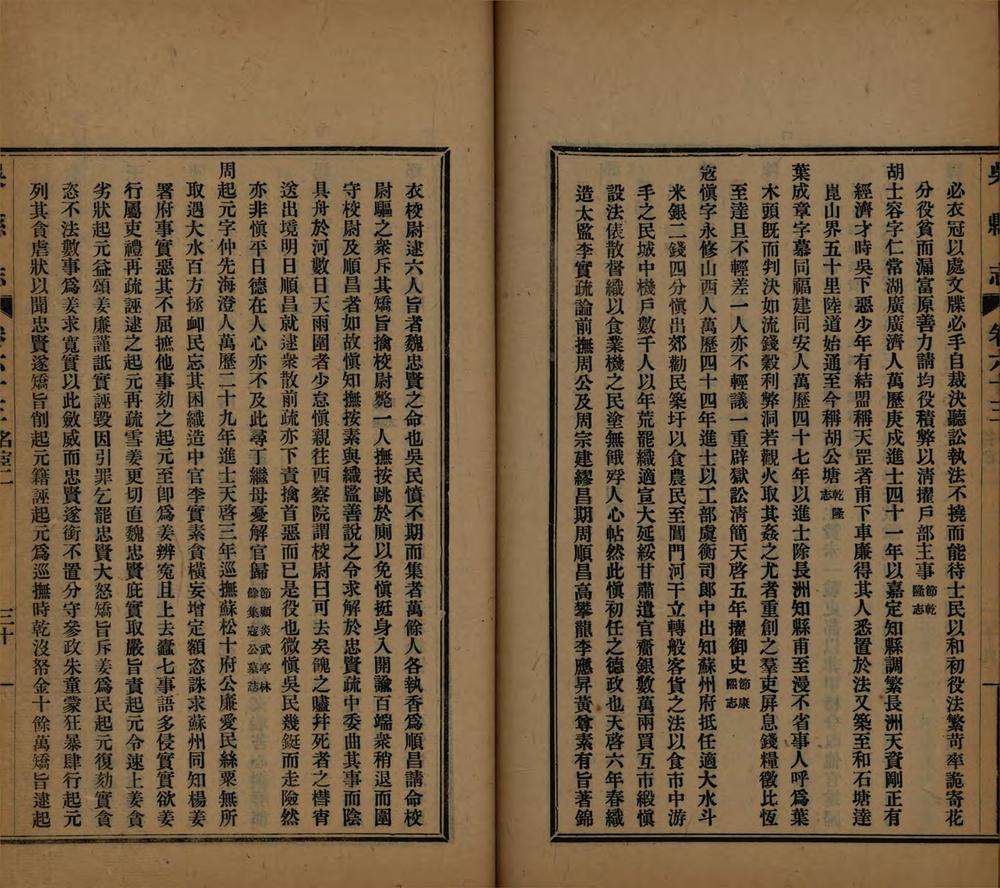 吳縣志 卷六十三
必衣冠以處文牒必手自裁決聽訟執法不撓而能待士民以和初役法繁苛率詭寄花
分役貧而漏富原善力請均役積弊以清擢戶部主事節乾隆志
胡士容字仁常湖廣廣濟人萬歷庚戌進士四十一年以嘉定知縣調繁長洲天資剛正有
經濟才時吳下惡少年有結盟稱天罡者甫下車廉得其人悉置於法又築至和石塘達
崑山界五十里陸道始通至今稱胡公塘乾隆志
葉成章字慕同福建同安人萬歷四十七年以進士除長洲知縣甫至漫不省事人呼爲葉
木頭旣而判決如流錢穀利弊洞若觀火取其姦之尤者重創之羣吏屏息錢糧徵比恆
至達旦不輕差一人亦不輕議一重辟獄訟淸簡天啓五年擢御史節康熙志
寇愼字永修山西人萬歷四十四年進士以工部虞衡司郎中出知蘇州府抵任適大水斗
米銀二錢四分愼出郊勸民築圩以食農民至閶門河干立轉般客貨之法以食市中游
手之民城中機戶數千人以年荒罷織適宣大延綏甘肅遣官齎銀數萬兩買互市緞愼
設法俵散督織以食業機之民塗無餓殍人心帖然此愼初任之德政也天啓六年春織
造太監李實疏論前撫周公及周宗建繆昌期周順昌高攀龍李應昇黃尊素有旨著錦
衣校尉逮六人旨者魏忠賢之命也吳民憤不期而集者萬餘人各執香爲順昌請命校
尉驅之衆斥其矯旨擒校尉斃一人撫按跳於廁以免愼挺身入開諭百端衆稍退而圍
守校尉及順昌者如故愼知撫按素與織監善說之令求解於忠賢疏中委曲其事而陰
具舟於河數日天雨圍者少怠愼親往西察院謂校尉曰可去矣餽之贐幷死者之槥宵
送出境明日順昌就逮衆散前疏亦下責擒首惡而已是役也微愼吳民幾鋌而走險然
亦非愼平日德在人心亦不及此尋丁繼母憂解官歸節顧炎武亭林餘集寇公墓志
周起元字仲先海澄人萬歷二十九年進士天啓三年巡撫蘇松十府公廉愛民絲粟無所
取遇大水百方拯卹民忘其困織造中官李實素貪橫妄增定額恣誅求蘇州同知楊姜
署府事實惡其不屈摭他事劾之起元至卽爲姜辨寃且上去蠹七事語多侵實實欲姜
行屬吏禮再疏誣逮之起元再疏雪姜更切直魏忠賢庇實取嚴旨責起元令速上姜貪
劣狀起元益頌姜廉謹詆實誣毀因引罪乞罷忠賢大怒矯旨斥姜爲民起元復劾實貪
恣不法數事爲姜求寬實以此斂威而忠賢遂銜不置分守參政朱童蒙狂暴肆行起元
列其貪虐狀以聞忠賢遂矯旨削起元籍誣起元爲巡撫時乾沒帑金十餘萬矯旨逮起
吳縣志 卷六十三 名宦二 三十一